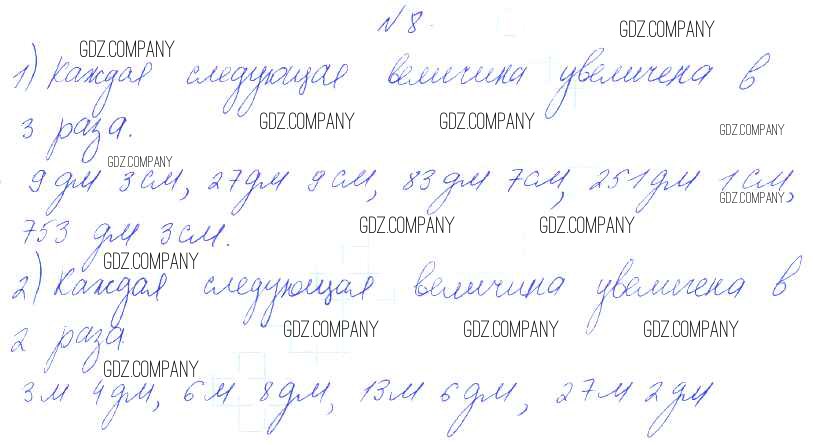 №8.
GDZ.COMPANY GDZ.COMPANY
1) Каждая следующая величина увеличена в
3 раза.
GDZ.COMPANY GDZ.COMPANY GDZ.COMPANY
GDZ.COMPANY
9 дм 3 см, 27 дм 9 см, 83 дм 7 см, 251 дм 1 см,
GDZ.COMPANY
753 дм 3 см.
GDZ.COMPANY GDZ.COMPANY
GDZ.COMPANY
2) Каждая следующая величина увеличена в
2 раза
GDZ.COMPANY GDZ.COMPANY GDZ.COMPANY
GDZ.COMPANY
3 м 4 дм, 6 м 8 дм, 13 м 6 дм, 27 м 2 дм